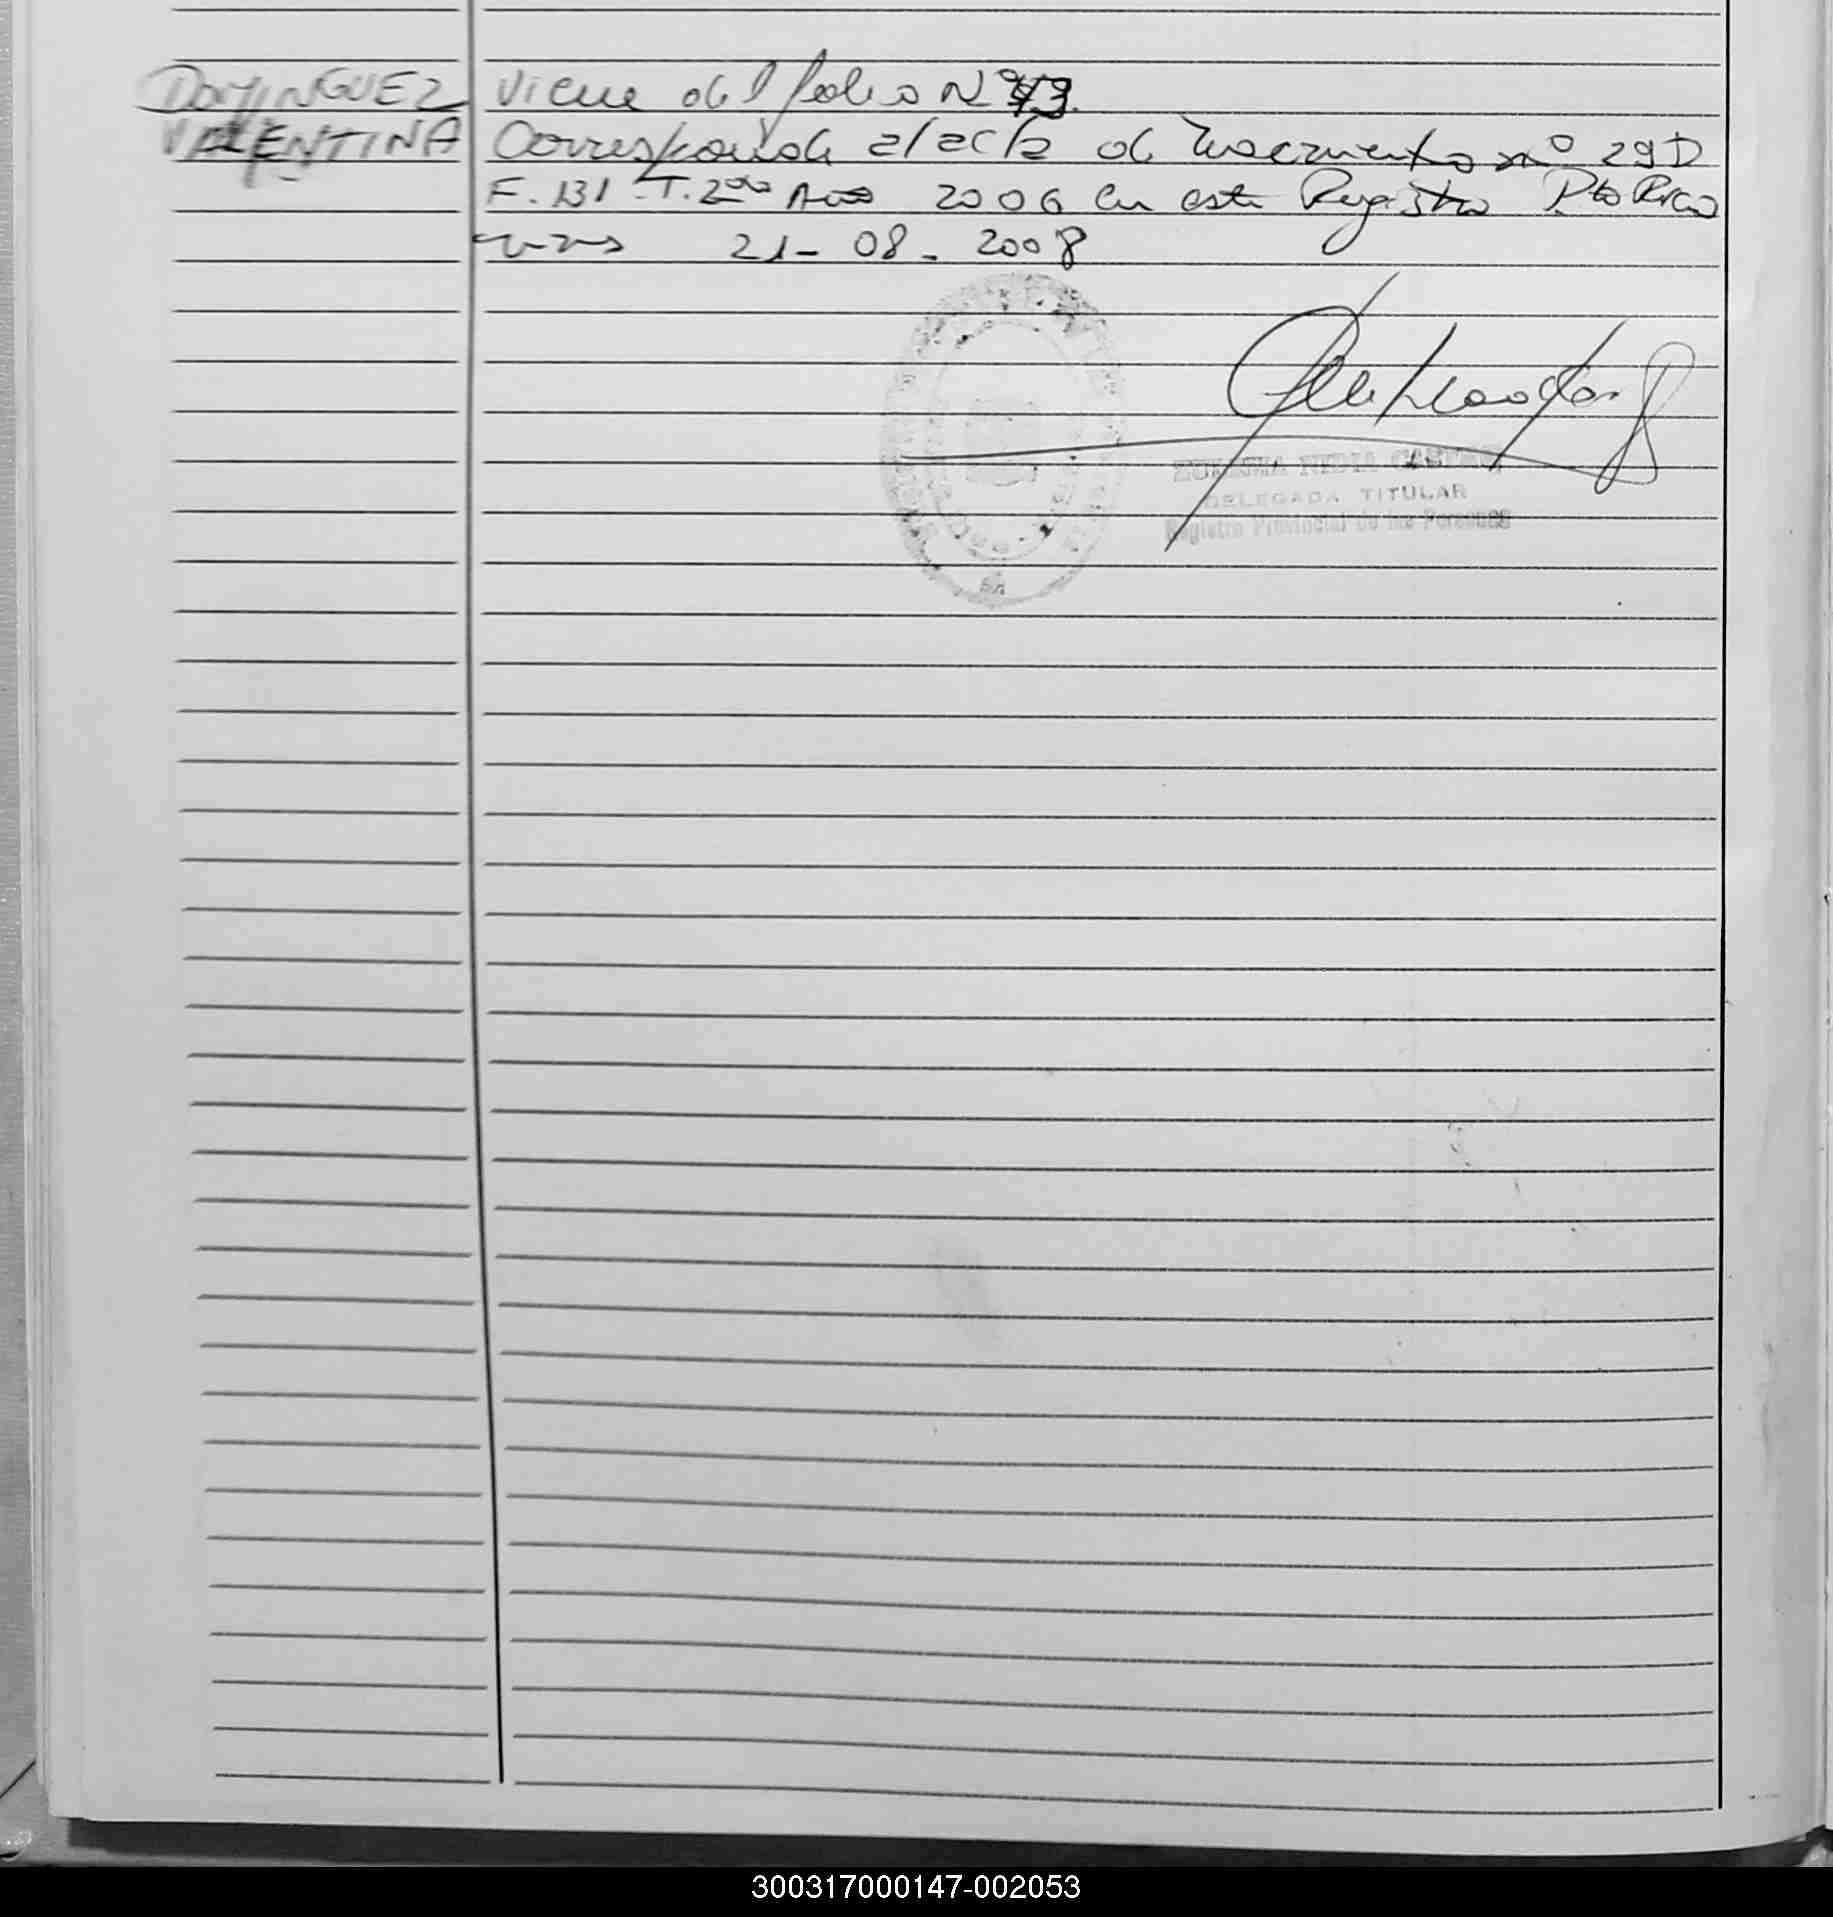 DOMINGUEZ Viene del folio Nº
VALENTINA Corresponde al acta de Nacimiento nº 29D
F. 131 T. 2do Año 2006 en este Registro Pto Rico
21-08-2008
NIDIA
DELEGADA TITULAR
Registro Provincial de las Personas
300317000147-002053